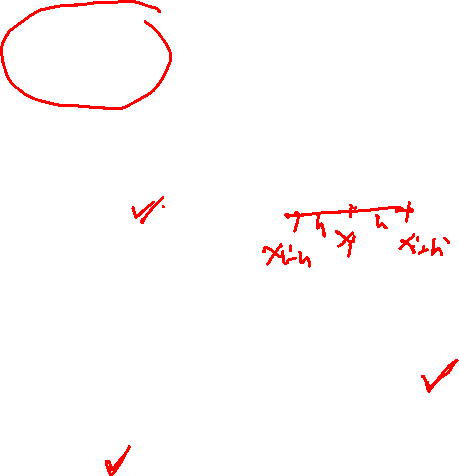 h h
xi-h xi xi+h